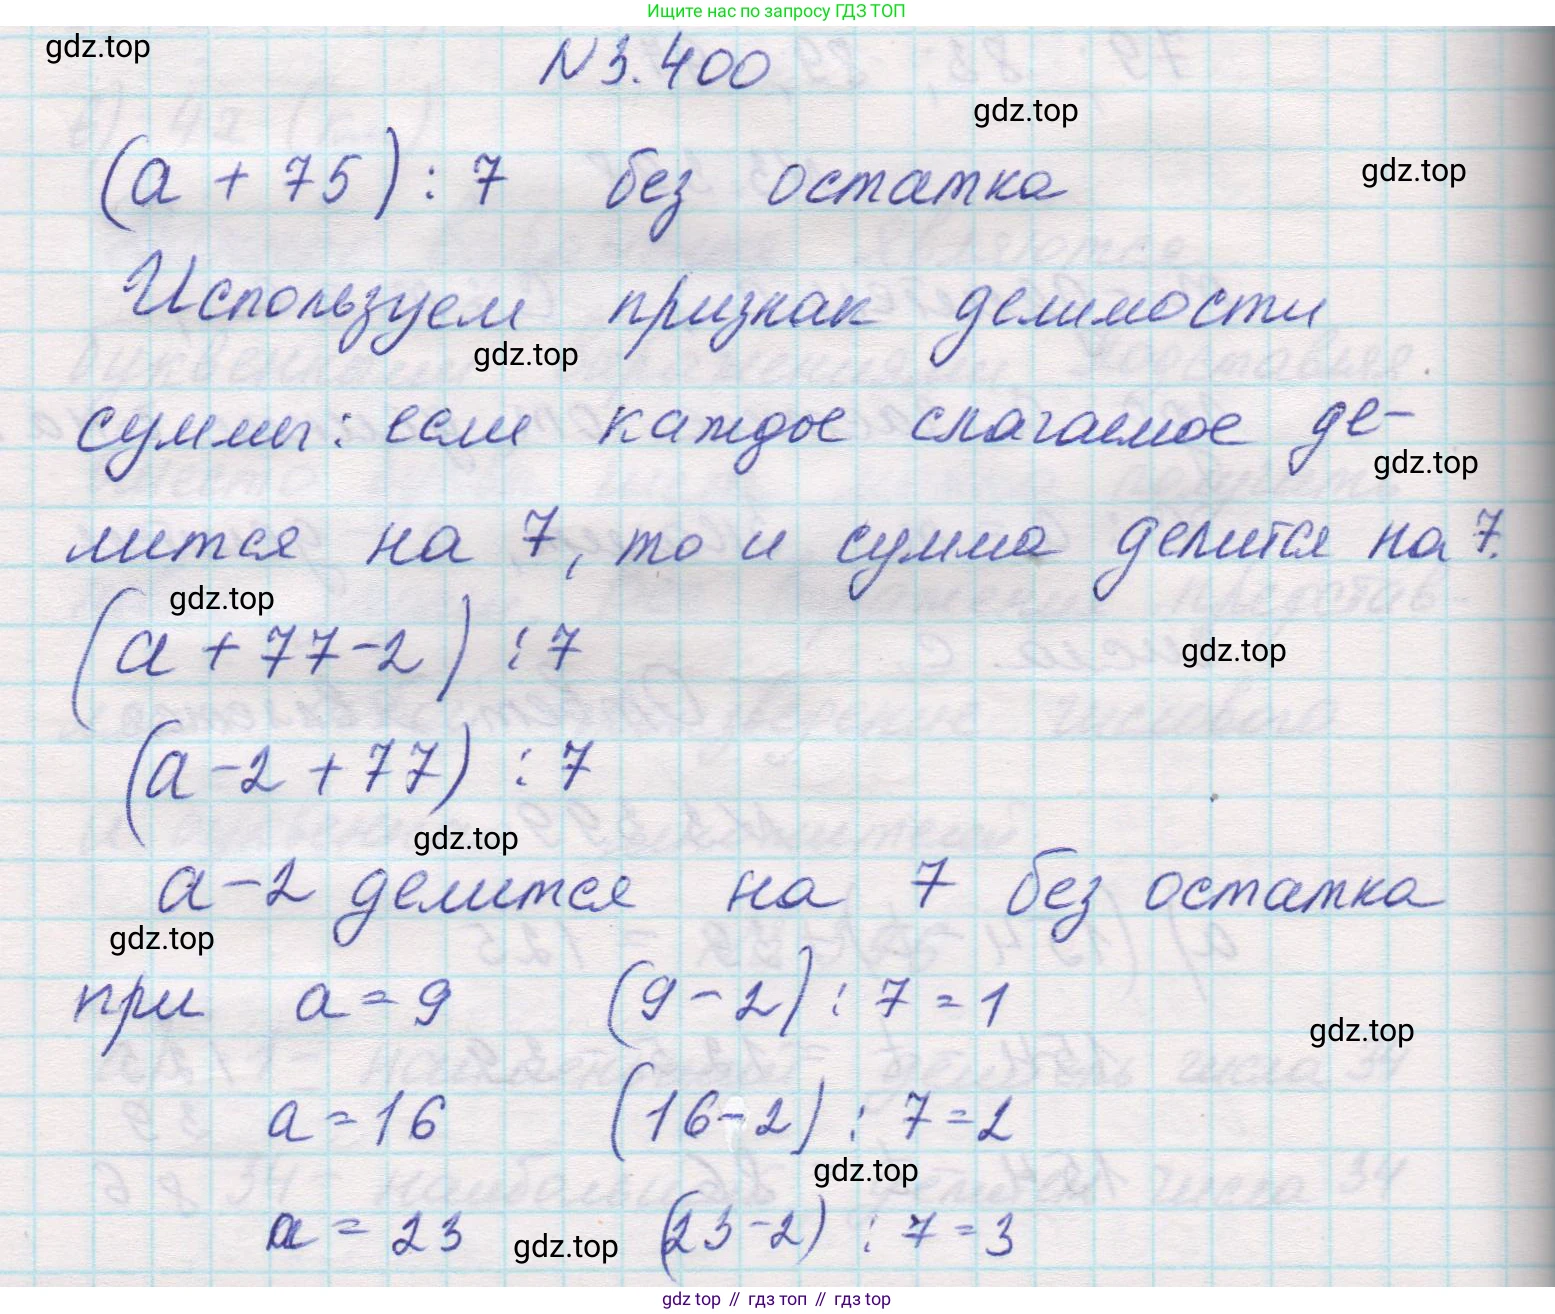 Ищите нас по запросу ГДЗ ТОП
gdz.top
N 3.400
gdz.top
(a + 75) : 7 без остатка
gdz.top
Используем признак делимости
gdz.top
суммы: если каждое слагаемое де-
gdz.top
лится на 7, то и сумма делится на 7.
gdz.top
(a + 77 - 2) : 7
gdz.top
(a - 2 + 77) : 7
gdz.top
a - 2 делится на 7 без остатка
gdz.top
при a = 9 (9 - 2) : 7 = 1
gdz.top
a = 16 (16 - 2) : 7 = 2
gdz.top
a = 23 (23 - 2) : 7 = 3
gdz.top
gdz top // гдз топ // гдз top